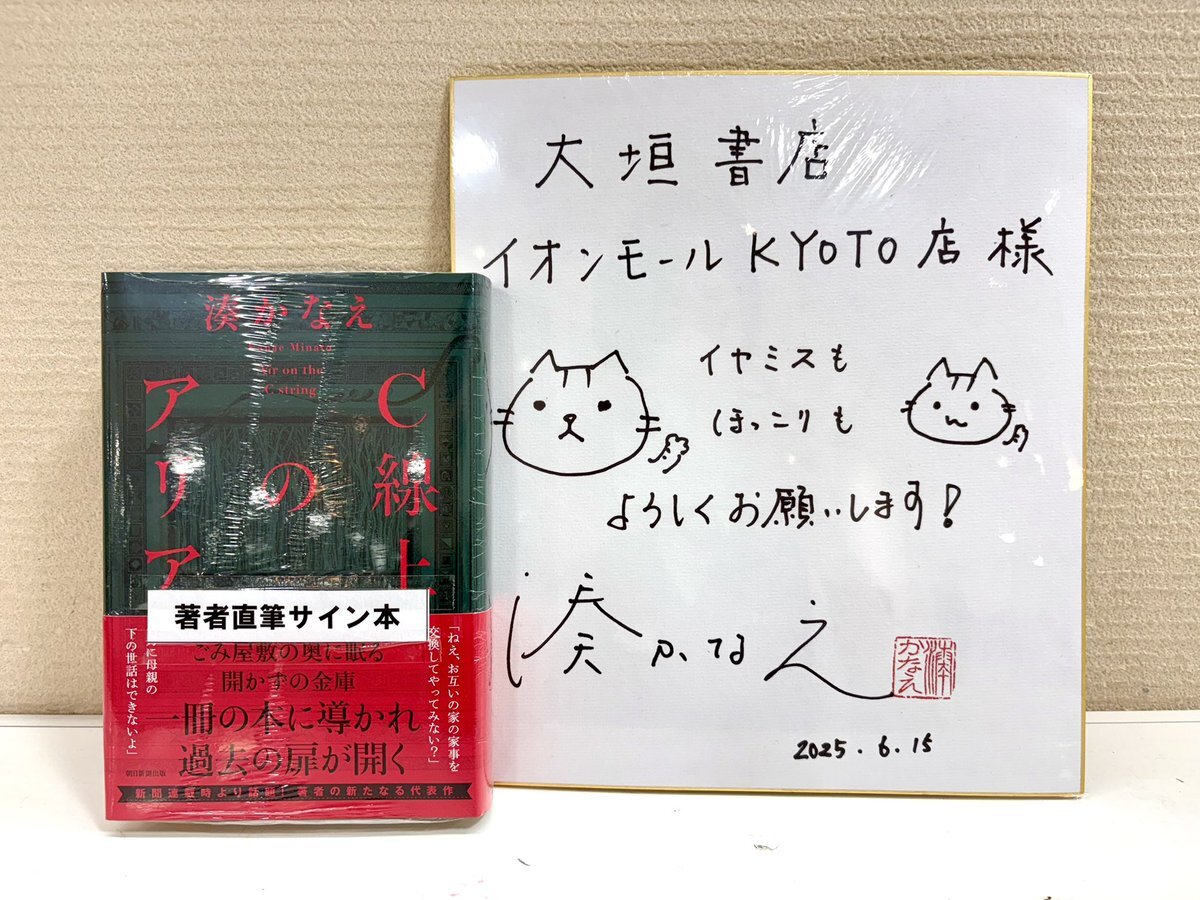 湊かなえ
Kanae Minato
Air on the
C string
C線上
の
アリア
著者直筆サイン本
「ねえ、お互いの家の家事を
交換してやってみない?」
ごみ屋敷の奥に眠る
開かずの金庫
一冊の本に導かれ
過去の扉が開く
に母親の
下の世話はできないよ」
朝日新聞出版
新聞連載時より話題!著者の新たなる代表作
大垣書店
イオンモールKYOTO店様
イヤミスも
ほっこりも
よろしくお願いします!
湊かなえ
湊かなえ
2025.6.15